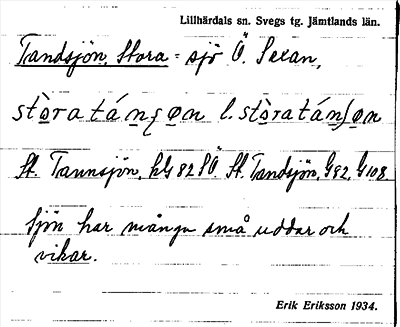 Lillhärdals sn. Svegs tg. Jämtlands län.
Tandsjön, Stora = sjö Ö. Sexan,
stòra tánʃøn l. stòra tánʃøn
St. Tannsjön, St. Tandsjön, G92, G108
Sjön har många små uddar och
vikar.
Erik Eriksson 1934.